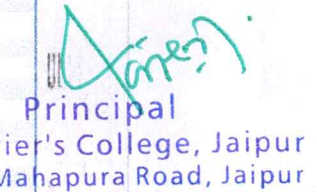 Principal
ier's College, Jaipur
Mahapura Road, Jaipur